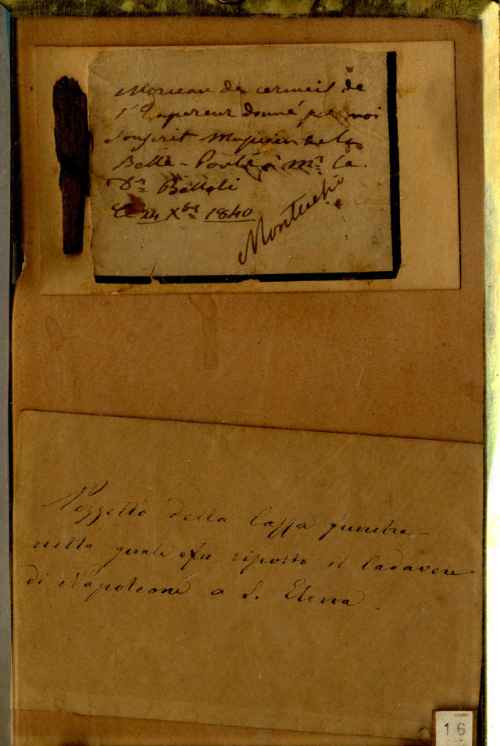 Morceau du cercueil de
l'Empereur donné par moi
soussigné Musicien de la
Belle-Poule à Mr le
Dr Bettoli
Ce 24 Xbre 1840
Pezzetto della Cassa funebre
nella quale fu riposto il Cadavere
di Napoleone a S. Elena.
16